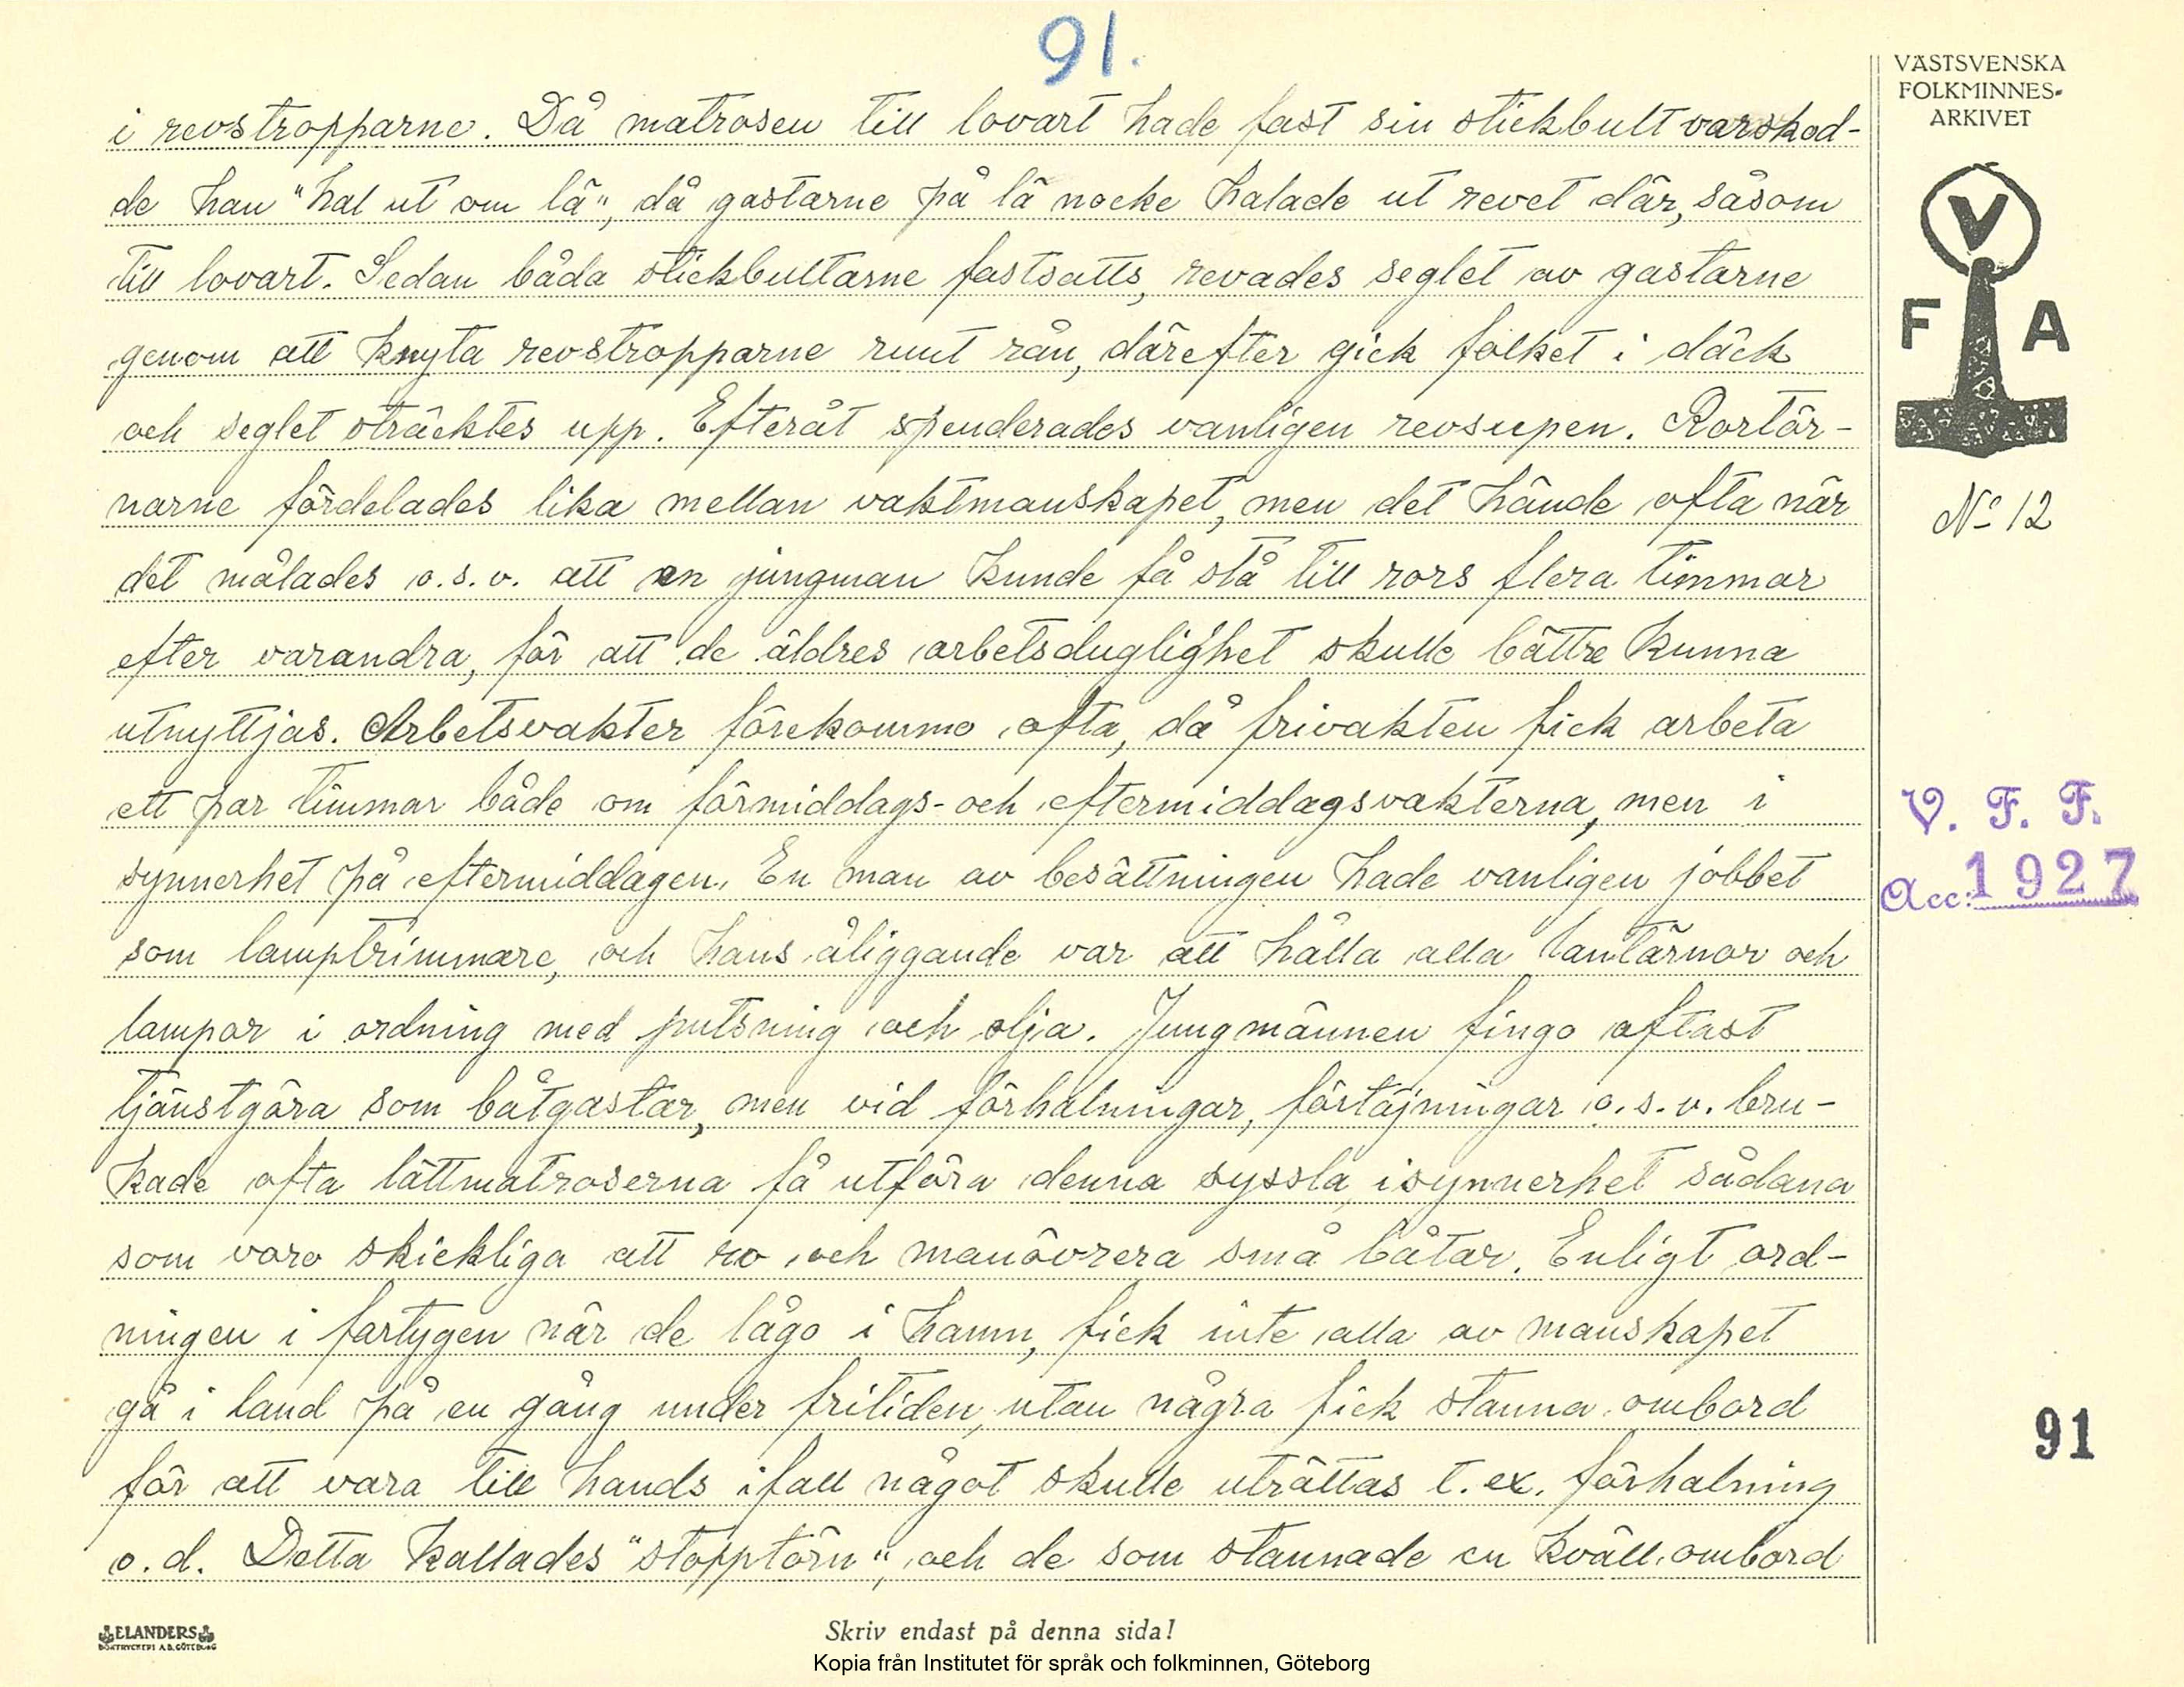 91.
i revstropparne. Då matrosen till lovart hade fast sin stickbult varskod-
de han "hal ut om lä", då gastarne på lä nocke halade ut revet där, såsom
till lovart. Sedan båda stickbultarne fastsatts, revades seglet av gastarne
genom att knyta revstropparne runt rån, därefter gick folket i däck
och seglet sträcktes upp. Efteråt spenderades vanligen revsupen. Rortör-
narne fördelades lika mellan vaktmanskapet, men det hände ofta när
det målades o.s.v. att en jungman kunde få stå till rors flera timmar
efter varandra, för att de äldres arbetsduglighet skulle bättre kunna
utnyttjas. Arbetsvakter förekommo ofta, då frivakten fick arbeta
ett par timmar både om förmiddags- och eftermiddagsvakterna, men i
synnerhet på eftermiddagen. En man av besättningen hade vanligen jobbet
som lamptrimmare, och hans åliggande var att hålla alla lantärnor och
lampor i ordning med putsning och olja. Jungmännen fingo oftast
tjänstgöra som båtgastar, men vid förhalningar, förtöjningar o.s.v. bru-
kade ofta lättmatroserna få utföra denna syssla, isynnerhet sådana
som voro skickliga att ro och manövrera små båtar. Enligt ord-
ningen i fartygen när de lågo i hamn, fick inte alla av manskapet
gå i land på en gång under fritiden, utan några fick stanna ombord
för att vara till hands ifall något skulle uträttas t.ex. förhalning
o.d. Detta kallades "stopptörn", och de som stannade en kväll ombord
VÄSTSVENSKA
FOLKMINNES-
ARKIVET
V
F A
No 12
V. F. F.
Acc: 1927
91
ELANDERS
BOKTRYCKERI A.B. GÖTEBORG
Skriv endast på denna sida!
Kopia från Institutet för språk och folkminnen, Göteborg